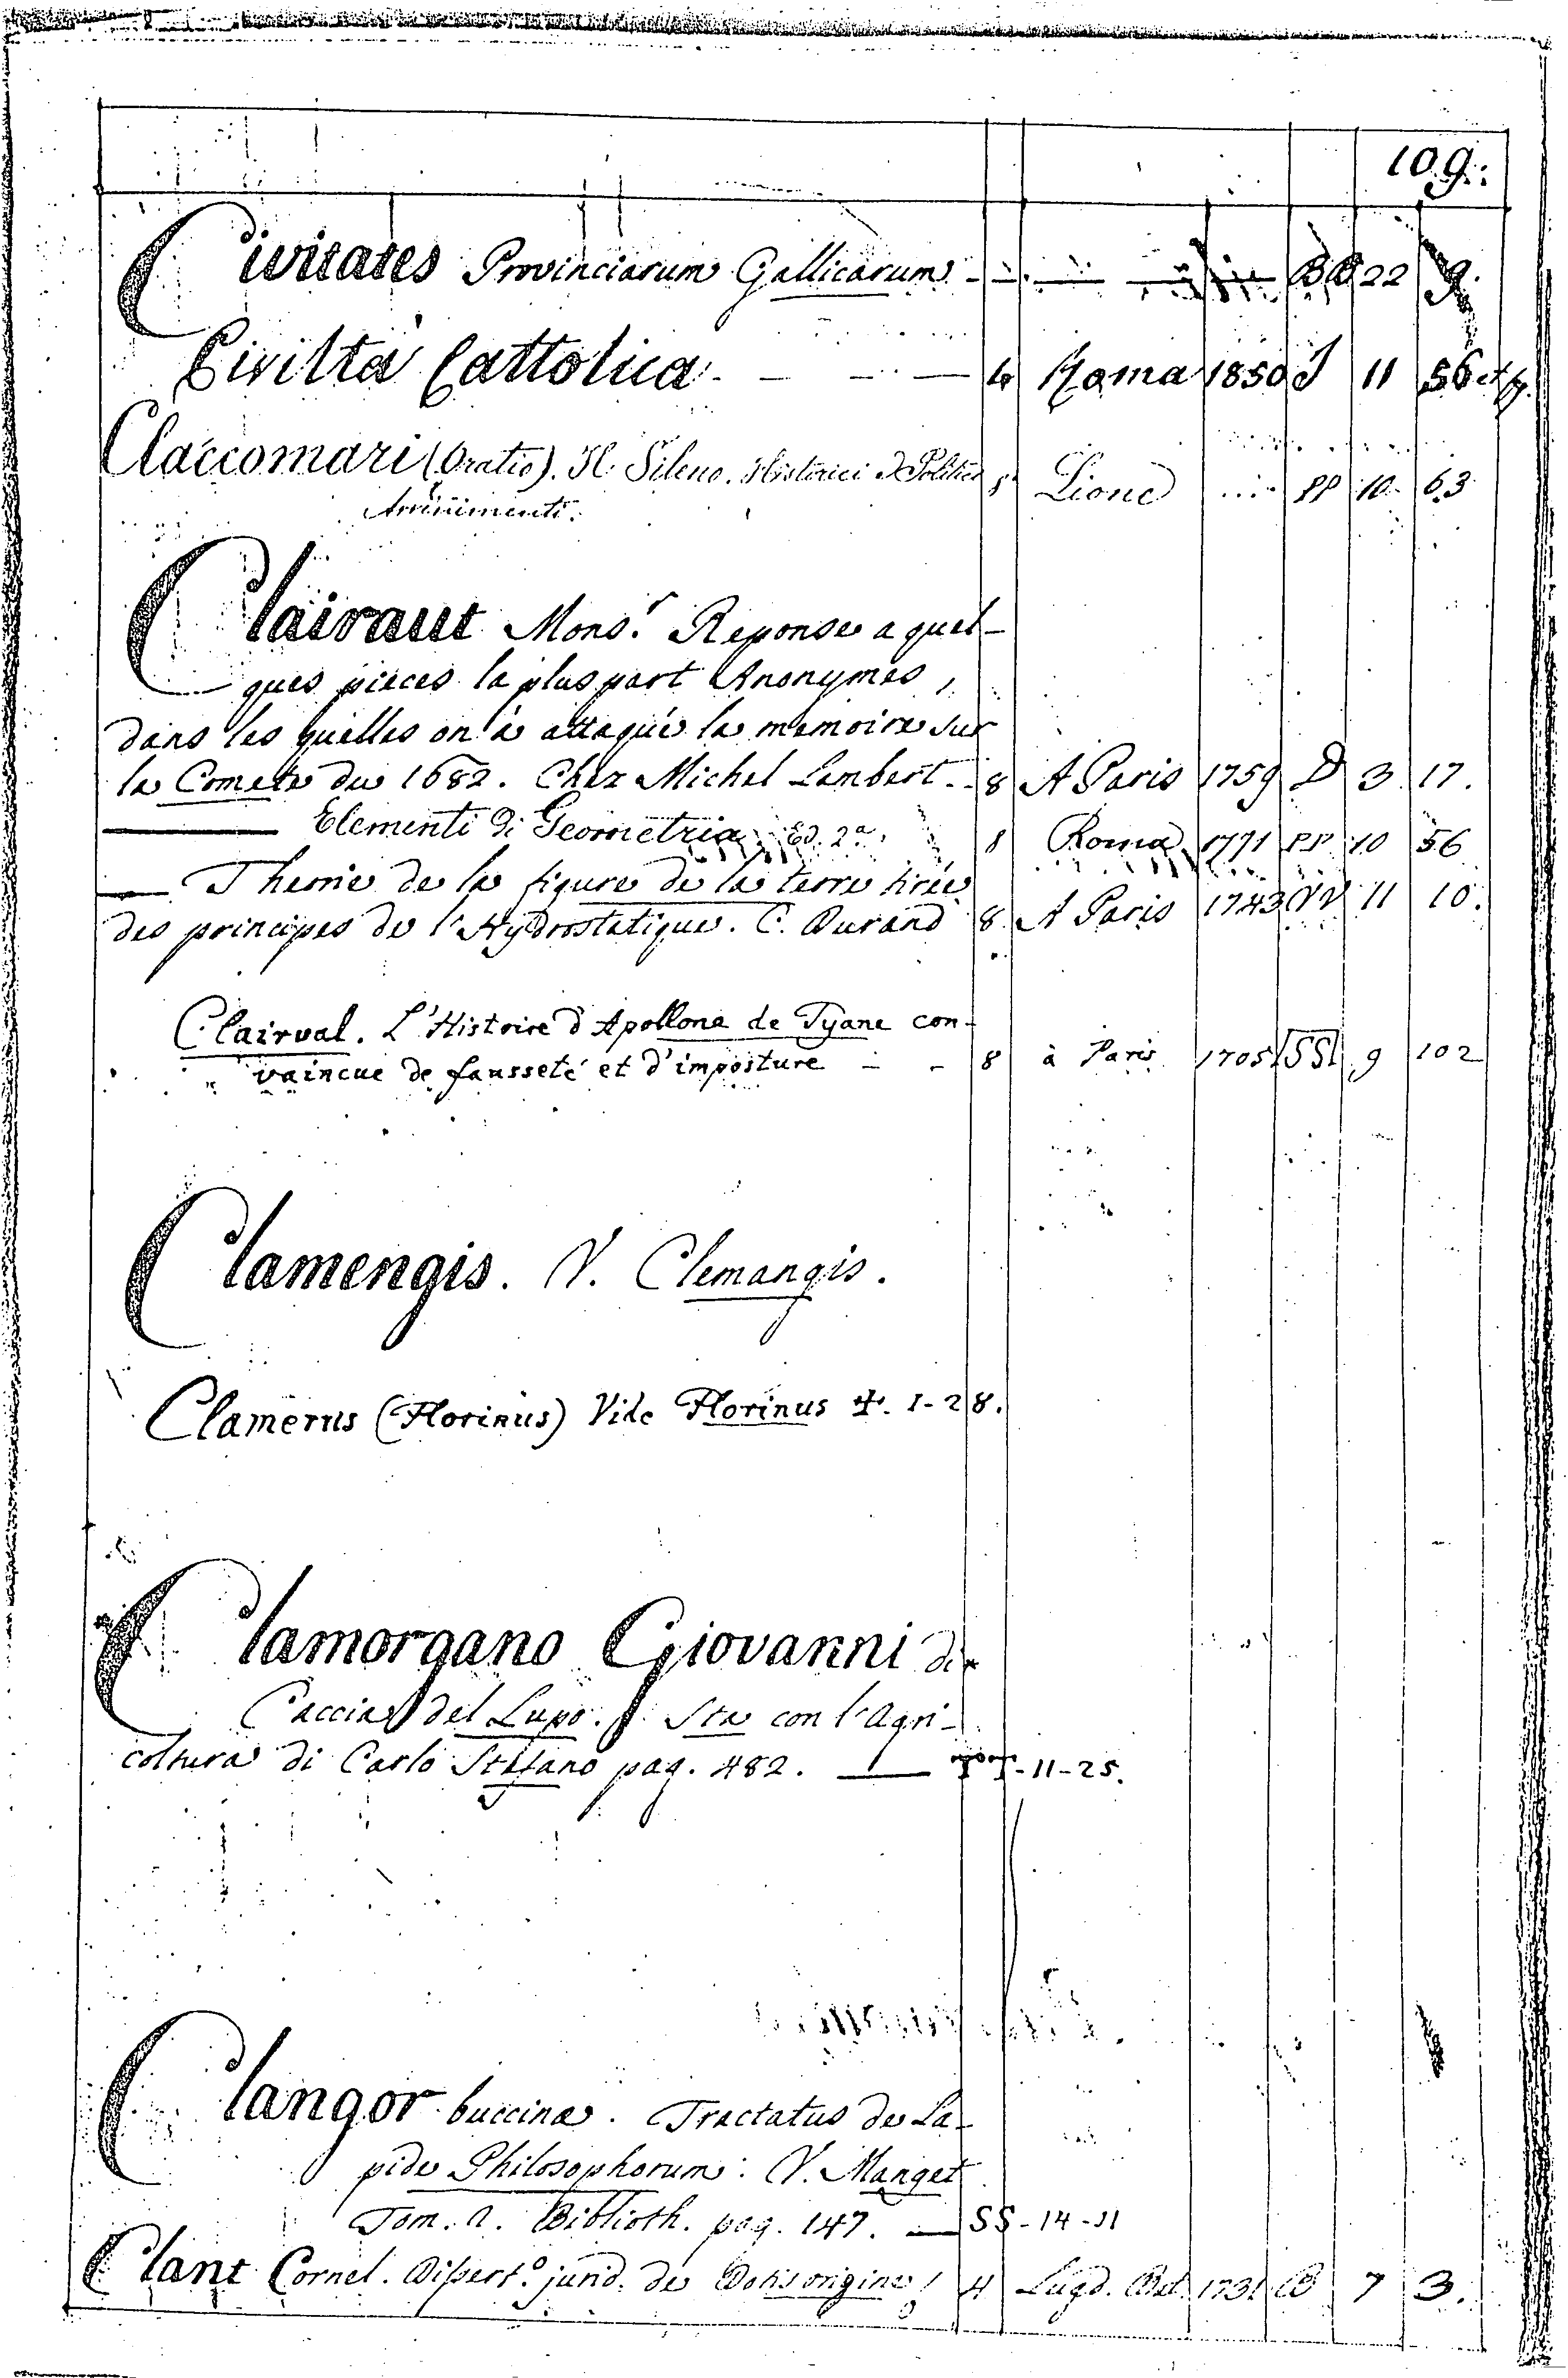 109.
Civitates Provinciarum Gallicarum - - — — — BB 22 9.
Civiltà Cattolica - — - — 4 Roma 1850 J 11 56 et
Claccomari (Oratio). Il Sileno. Historici e Politici 8 Lione .... PP 10 63
Avvenimenti.
Clairaut Mons.r Reponse a quel-
ques pieces la plus part Anonymes,
dans les quelles on à attaqué le memoire sur
la Comete du 1682. Chez Michel Lambert. - 8 A Paris 1759 D 3 17.
——— Elementi di Geometria. Ed. 2a. 8 Roma 1771 PP 10 56
— Theorie de la figure de la terre tirée
des principes de l'Hydrostatique. C. Durand 8 A Paris 1743 VV 11 10.
Clairval. L'Histoire d'Apollone de Tyane con-
vaincue de fausseté et d'imposture - - 8 à Paris 1705 SS 9 102
Clamengis. V. Clemangis.
Clamerus (Florinus) Vide Florinus I-28.
Clamorgano Giovanni di
Caccia del Lupo. Sta con l'Agri-
coltura di Carlo Stefano pag. 482. — TT-11-25.
Clangor buccinæ. Tractatus de La-
pide Philosophorum. V. Manget
Tom. 2. Biblioth. pag. 147. — SS-14-11
Clant Cornel. Dissert.o jurid. de Dotis origine 4 Lugd. Bat. 1731 B 7 3.